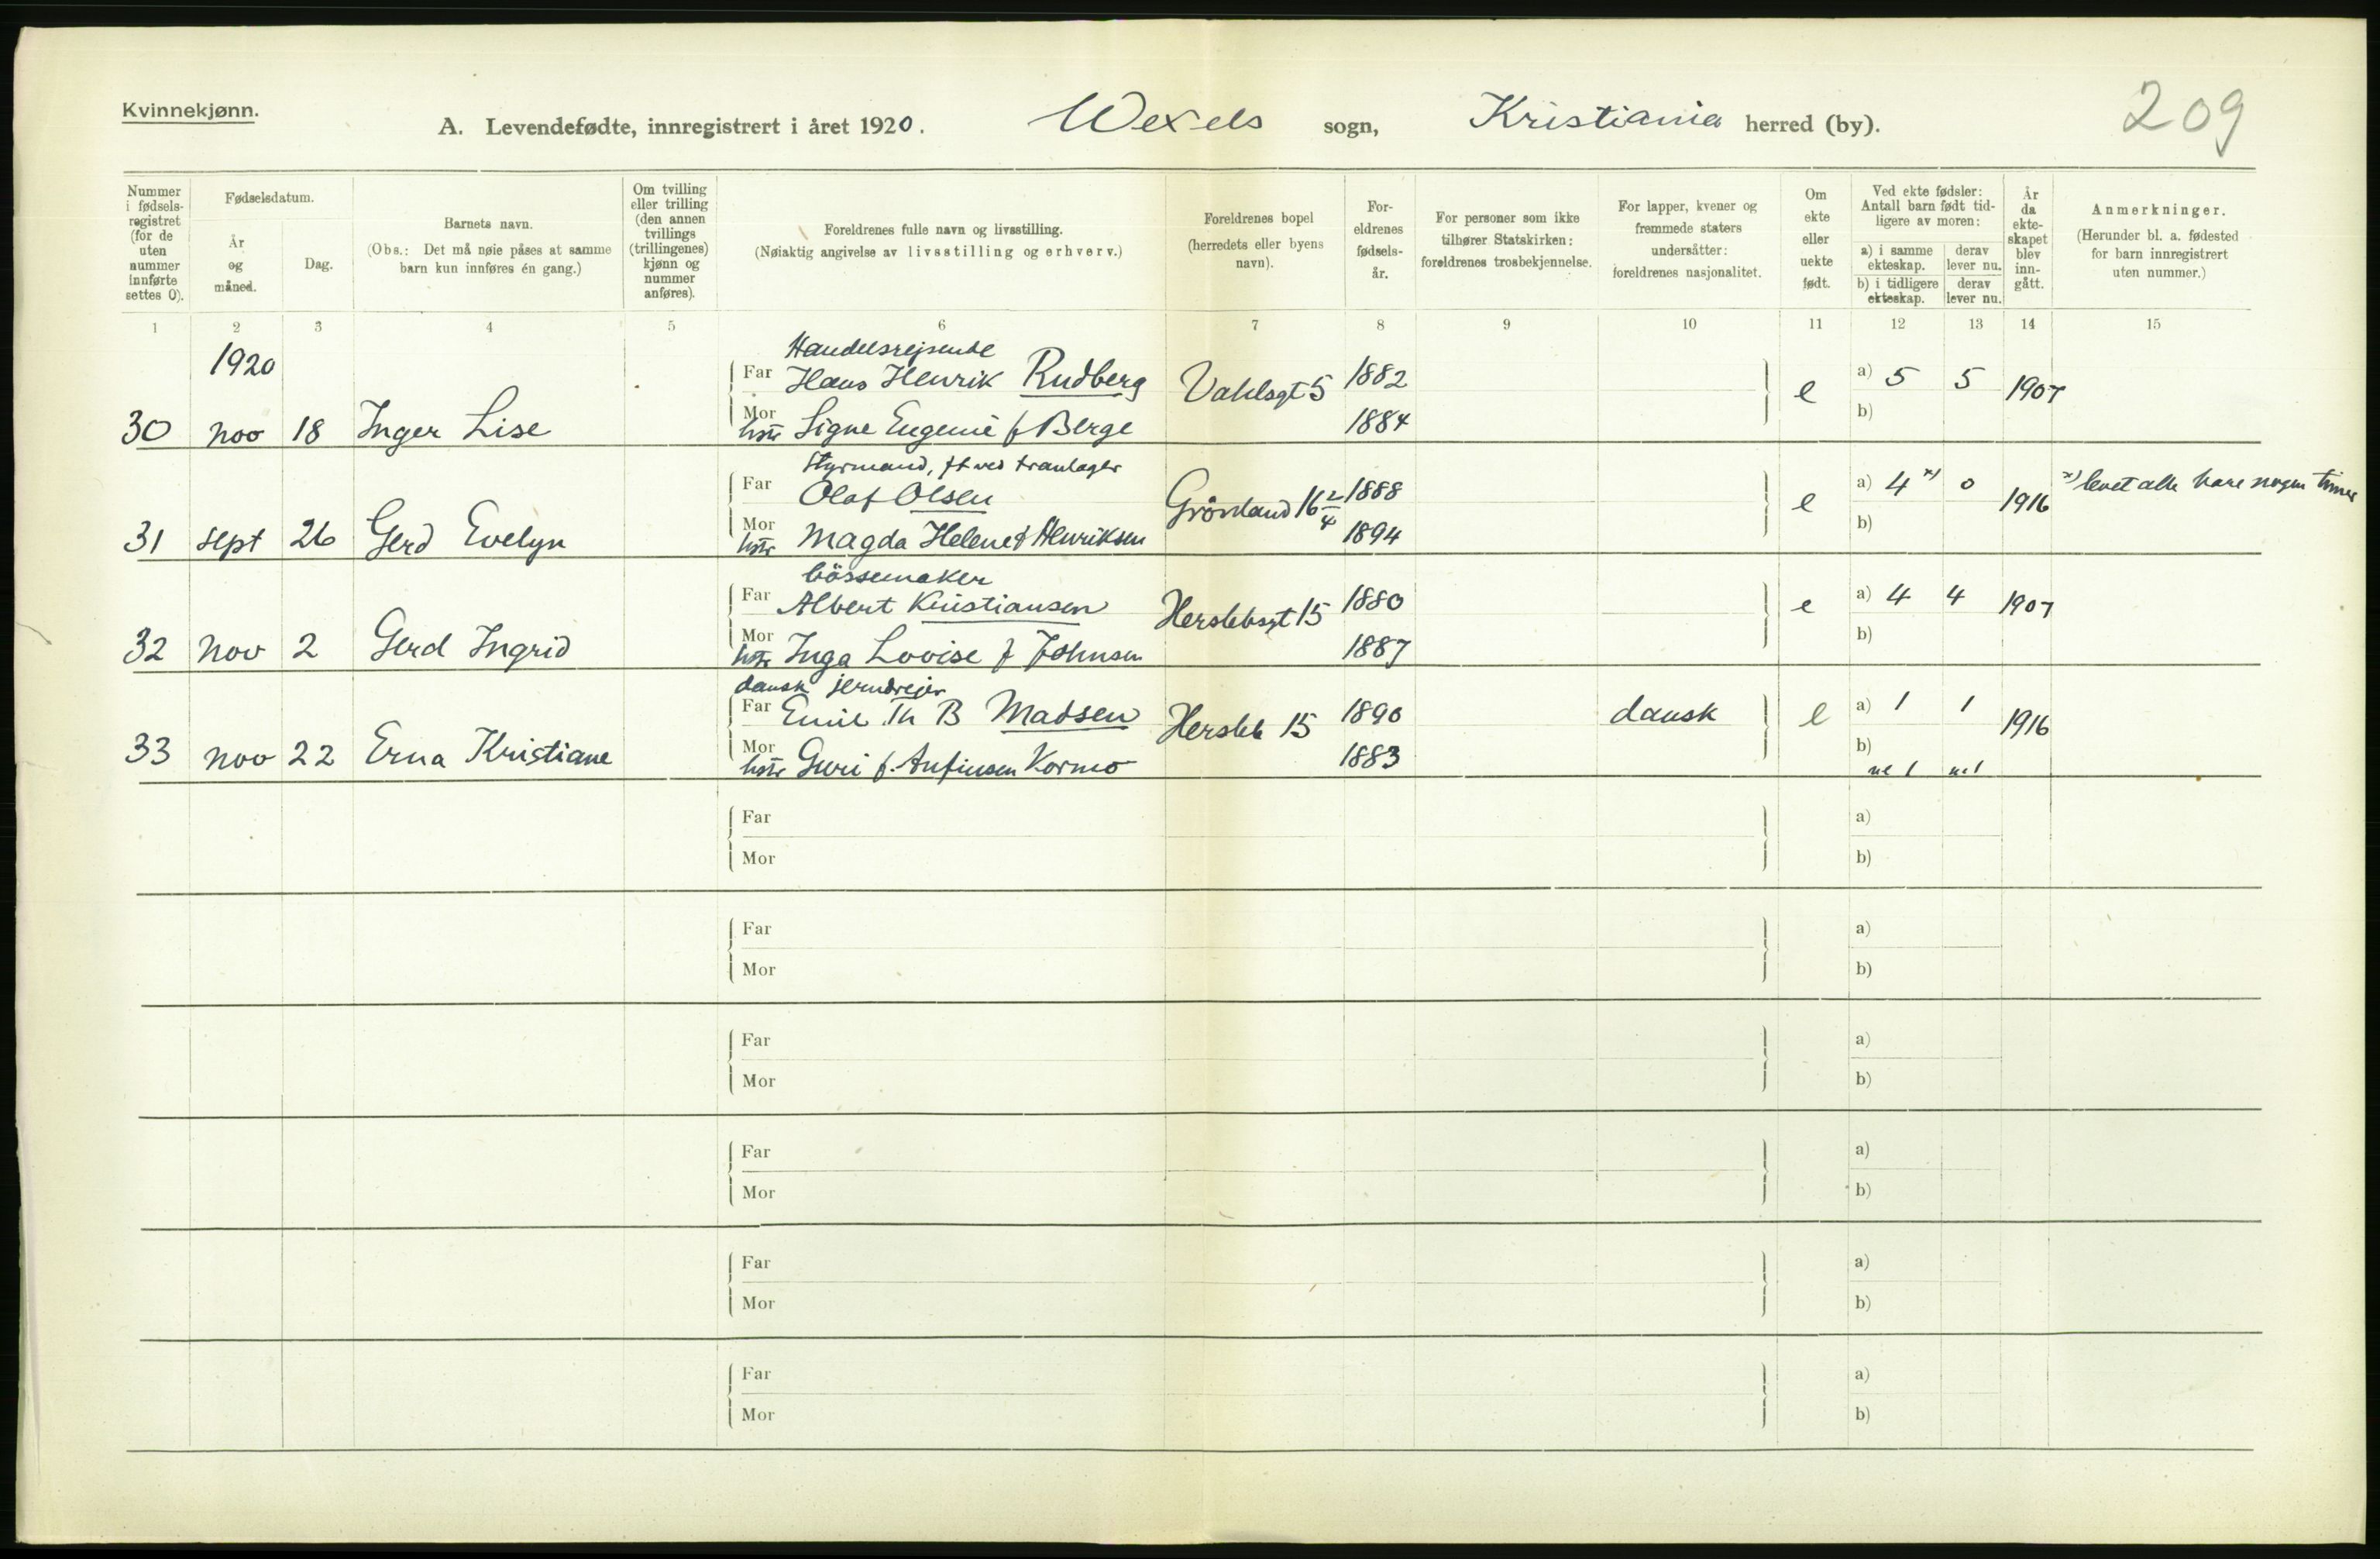 Kvinnekjønn.
A. Levendefødte, innregistrert i året 1920. Wexels sogn, Kristiania herred (by).
209
Nummer i fødselsregistret (for de uten nummer innførte settes 0).
Fødselsdatum.
År og måned.
Dag.
Barnets navn.
(Obs.: Det må nøie påses at samme barn kun innføres én gang.)
Om tvilling eller trilling (den annen tvillings (trillingenes) kjønn og nummer anføres).
Foreldrenes fulle navn og livsstilling.
(Nøiaktig angivelse av livsstilling og erhverv.)
Foreldrenes bopel (herredets eller byens navn).
Foreldrenes fødselsår.
For personer som ikke tilhører Statskirken: foreldrenes trosbekjennelse.
For lapper, kvener og fremmede staters undersåtter: foreldrenes nasjonalitet.
Om ekte eller uekte født.
Ved ekte fødsler: Antall barn født tidligere av moren:
a) i samme ekteskap.
derav lever nu.
b) i tidligere ekteskap.
derav lever nu.
År da ekteskapet blev inngått.
Anmerkninger.
(Herunder bl. a. fødested for barn innregistrert uten nummer.)
1 2 3 4 5 6 7 8 9 10 11 12 13 14 15
1920
Handelsrejsende
Far Hans Henrik Rudberg Vahlsgt 5 1882 e a) 5 5 1907
30 nov 18 Inger Lise Mor hstr Signe Eugenie f Berge 1884 b)
Styrmand, ft ved tranlager
Far Olaf Olsen Grønland 16 2/4 1888 e a) 4 x) 0 1916 x) levet alle bare nogen timer
31 sept 26 Gerd Evelyn Mor hstr Magda Helene f Henriksen 1894 b)
bössemaker
Far Albert Kristiansen Herslebsgt 15 1880 e a) 4 4 1907
32 nov 2 Gerd Ingrid Mor hstr Inga Lovise f Johnsen 1887 b)
dansk jerndrejer
Far Emil Th B Madsen Hersleb 15 1890 dansk e a) 1 1 1916
33 nov 22 Erna Kristiane Mor hstr Guri f. Anfinsen Kormo 1883 b)
ue 1 ue 1
Far a)
Mor b)
Far a)
Mor b)
Far a)
Mor b)
Far a)
Mor b)
Far a)
Mor b)
Far a)
Mor b)